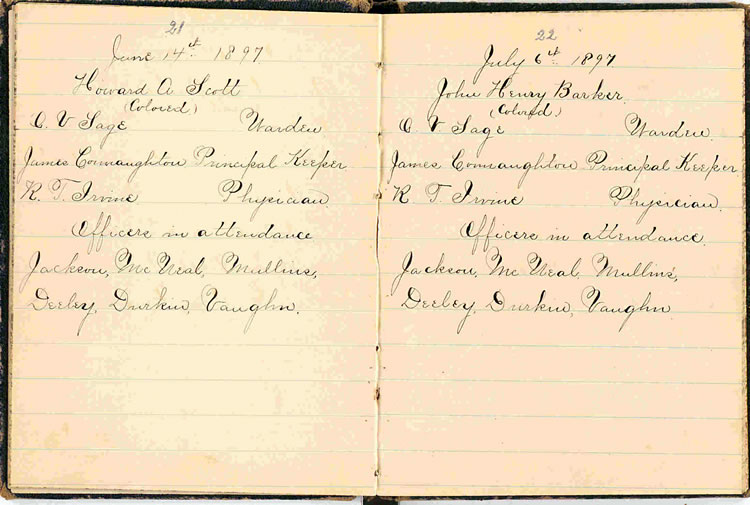 21
June 14th 1897
Howard A Scott
(Colored)
O. V Sage Warden
James Connaughton Principal Keeper
R. T. Irvine Physician
Officers in attendance
Jackson, Mc Neal, Mullins,
Deeley, Durkin, Vaughn.
22
July 6th 1897
John Henry Barker.
(Colored.)
O V Sage Warden.
James Connaughton Principal Keeper
R T. Irvine Physician.
Officers in attendance.
Jackson, Mc Neal, Mullins,
Deeley, Durkin, Vaughn